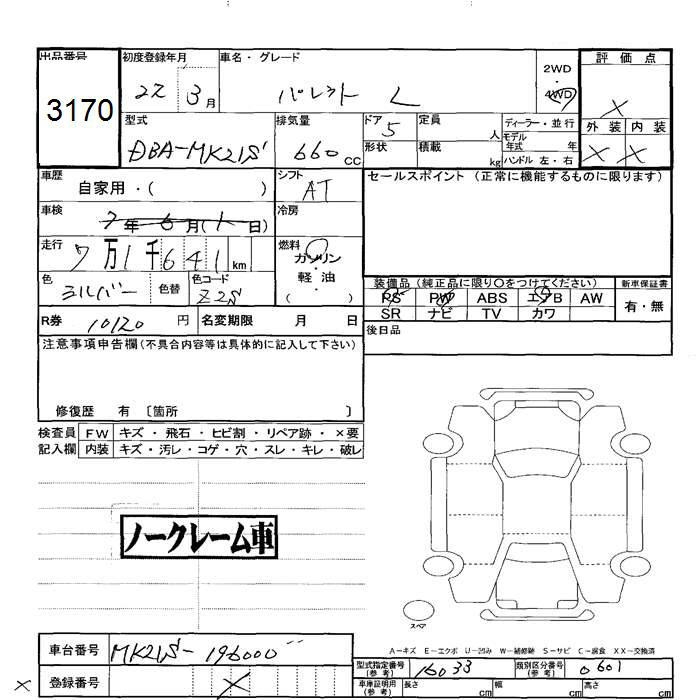 出品番号
3170
初度登録年月
22 3月
車名・グレード
パレット L
2WD
・
4WD
評価点
X
外装 内装
X X
型式
DBA-MK21S
排気量
660 CC
ドア
5
形状
定員
人
積載
kg
ディーラー・並行
モデル
年式 年
ハンドル 左・右
車歴
自家用・( )
シフト
AT
セールスポイント (正常に機能するものに限ります)
車検
7年6月(1日)
冷房
走行
7万1千641km
燃料
ガソリン
・
軽・油
( )
色
シルバー
色替
色コード
Z2S
装備品 (純正品に限り○をつけてください)
PS PW ABS エアB AW
SR ナビ TV カワ
新車保証書
有・無
R券 10120 円
名変期限 月 日
後日品
注意事項申告欄(不具合内容等は具体的に記入して下さい)
修復歴 有 〔箇所 〕
検査員
記入欄
FW キズ・飛石・ヒビ割・リペア跡・×要
内装 キズ・汚レ・コゲ・穴・スレ・キレ・破レ
ノークレーム車
スペア
A−キズ E−エクボ U−凹み W−補修跡 S−サビ C−腐食 XX−交換済
車台番号
MK21S-196000
登録番号
X
X
型式指定番号
(参考)
16033
類別区分番号
(参考)
0601
車庫証明用
(参考)
長さ cm
幅 cm
高さ cm